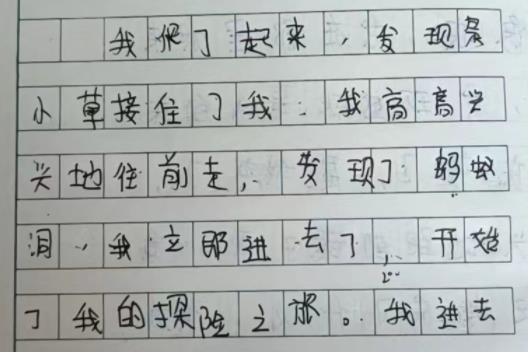 我伲了起来，发现象
小草接住了我．我高高兴
兴地住前走，发现了蚂蚁
洞，我立那进去了，开始
了我的探险之旅。我进去